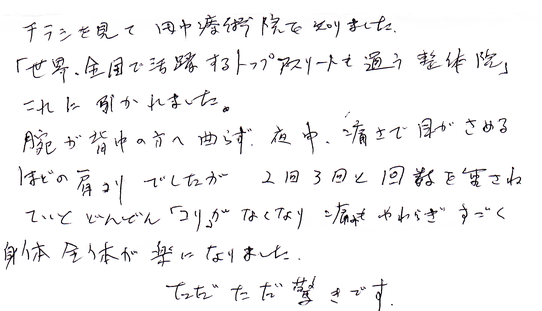 チラシを見て田中療術院を知りました。
「世界、全国で活躍するトップアスリートも通う整体院」
これに引かれました。
腕が背中の方へ曲らず、夜中、痛さで目がさめる
ほどの肩コリでしたが 2回3回と回数を重され
ていくとどんどん「コリ」がなくなり痛みもやわらぎすごく
身体全体が楽になりました。
ただただ驚きです。